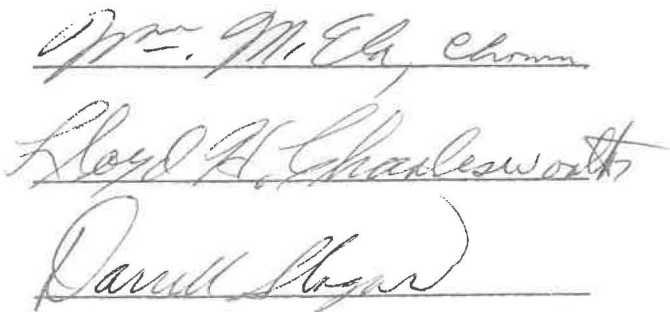 Wm. M. Ela, Chmn
Lloyd H. Charlesworth
Darrell